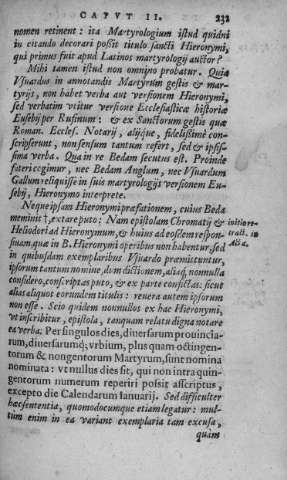 CAPVT II. 232
nomen retinent: ita Martyrologium istud quidni
in citando decorari possit titulo sancti Hieronymi,
qui primus fuit apud Latinos martyrologij auctor?
Mihi tamen istud non omnino probatur. Quia
Vsuardus in annotandis Martyrum gestis & mar-
tyrijs, non habet verba aut versionem Hieronymi,
sed verbatim vtitur versione Ecclesiasticæ historiæ
Eusebij per Rufinum: & ex Sanctorum gestis quæ
Roman. Eccles. Notarij, alijque, fidelissimè con-
scripserunt, non sensum tantum refert, sed & ipsis-
sima verba. Qua in re Bedam secutus est. Proinde
fateri cogimur, nec Bedam Anglum, nec Vsuardum
Gallum reliquisse in suis martyrologijs versionem Eu-
sebij, Hieronymo interprete.
Neque ipsam Hieronymi præfationem, cuius Beda
meminit, extare puto: Nam epistolam Chromatij &
Heliodori ad Hieronymum, & huius ad eosdem respon-
sum, quæ in B. Hieronymi operibus non habentur, sed
in quibusdam exemplaribus Vsuardo præmittuntur,
ipsorum tantum nomine, dum dictionem, aliaq, nonnulla
considero, conscriptas puto, & ex parte confictas: sicut
alias aliquot eorundem titulis: reuera autem ipsorum
non esse. Scio quidem nonnullos ex hac Hieronymi,
vt inscribitur, epistola, tanquam relatu digna notare
ea verba: Per singulos dies, diuersarum prouincia-
rum, diuersarumq; vrbium, plus quam octingen-
torum & nongentorum Martyrum, sunt nomina
nominata: vt nullus dies sit, qui non intra quin-
gentorum numerum reperiri possit ascriptus,
excepto die Calendarum Ianuarij. Sed difficulter
hæc sententia, quomodocumque etiam legatur: mul-
tum enim in ea variant exemplaria tam excusa,
quam